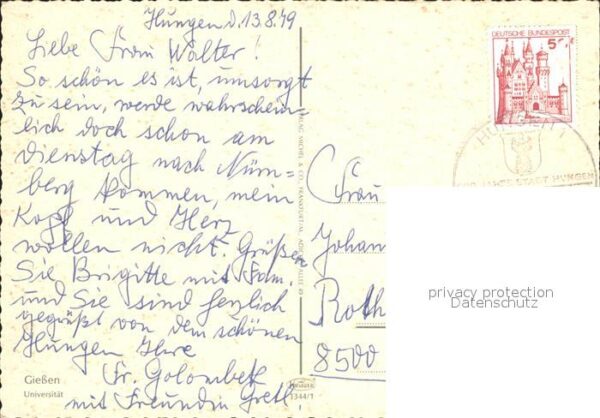 Hungen d. 13.8.79
Liebe Frau Walter!
So schön es ist, umsorgt
zu sein, werde wahrschein-
lich doch schon am
Dienstag nach Nürn-
berg kommen, mein
Kopf und Herz
wollen nicht. Grüßen
Sie Brigitte mit Fam.
und Sie sind herzlich
gegrüßt von dem schönen
Hungen Ihre
Fr. Golombek
mit Freundin Gretl.
Gießen
Universität
1344/1
DEUTSCHE BUNDESPOST
HUNGEN 1
STADT HUNGEN
Frau
Johan
Roth
8500
privacy protection
Datenschutz